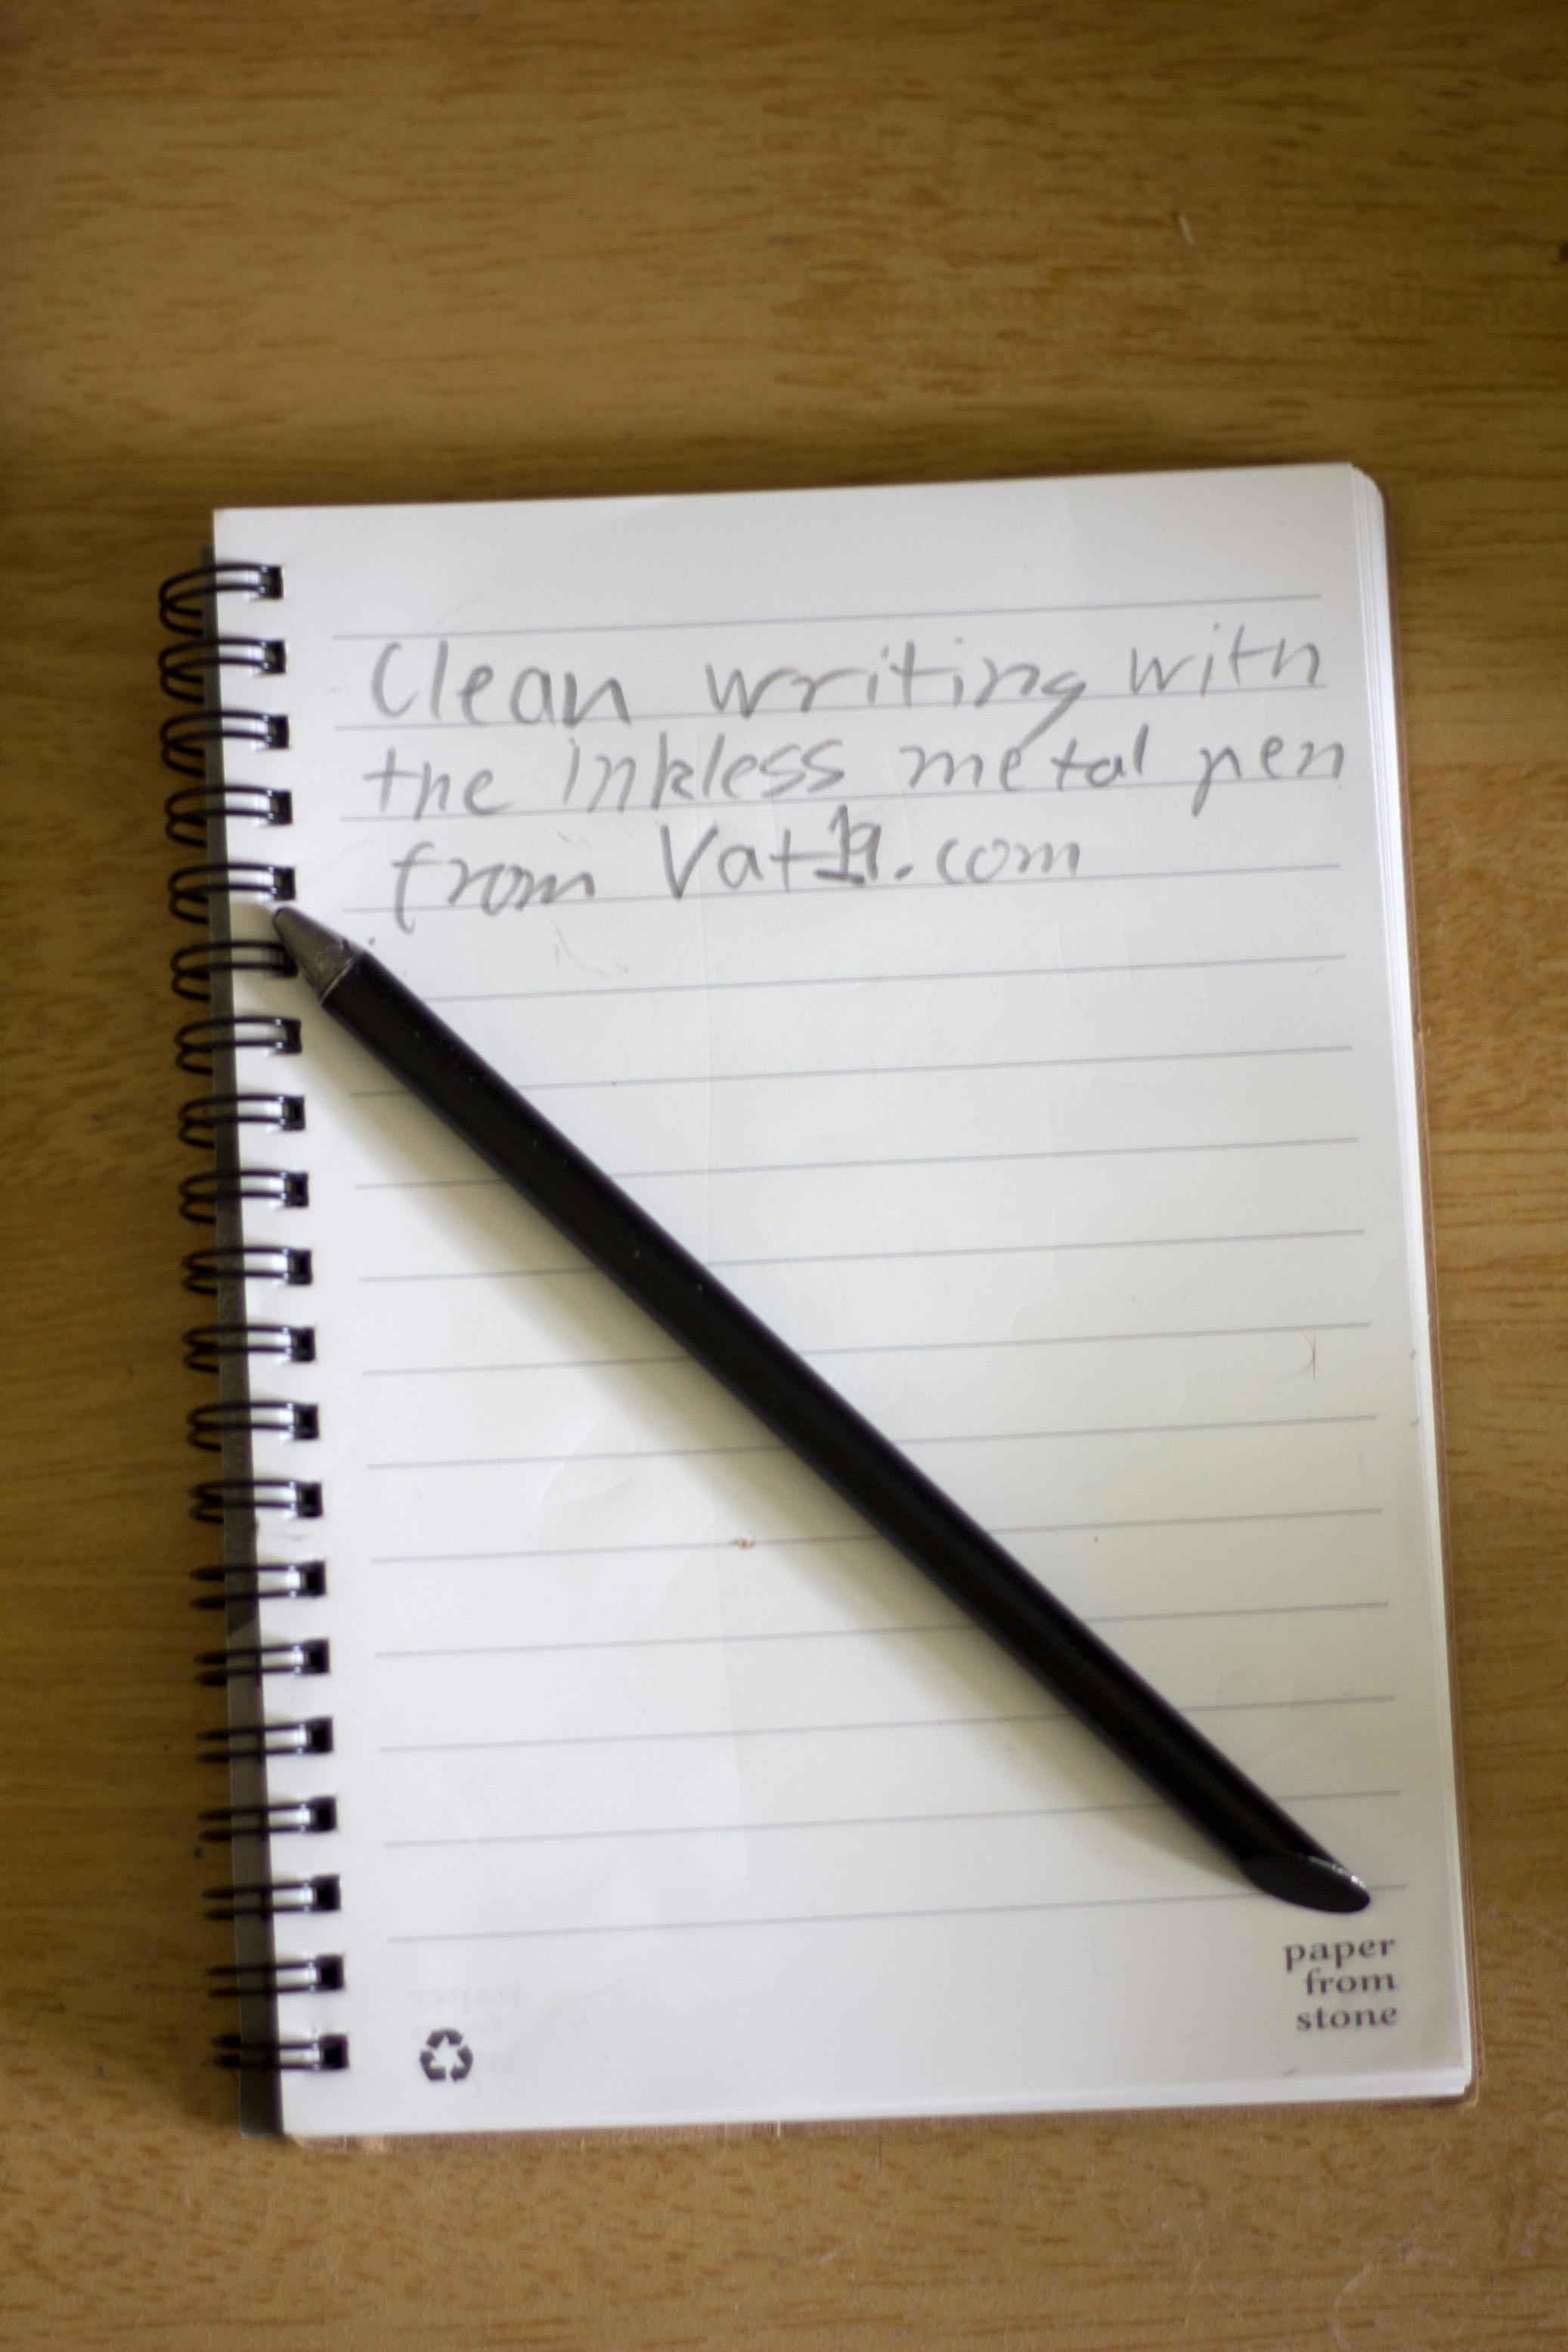 Clean writing with
the inkless metal pen
from Vat19.com
paper
from
stone